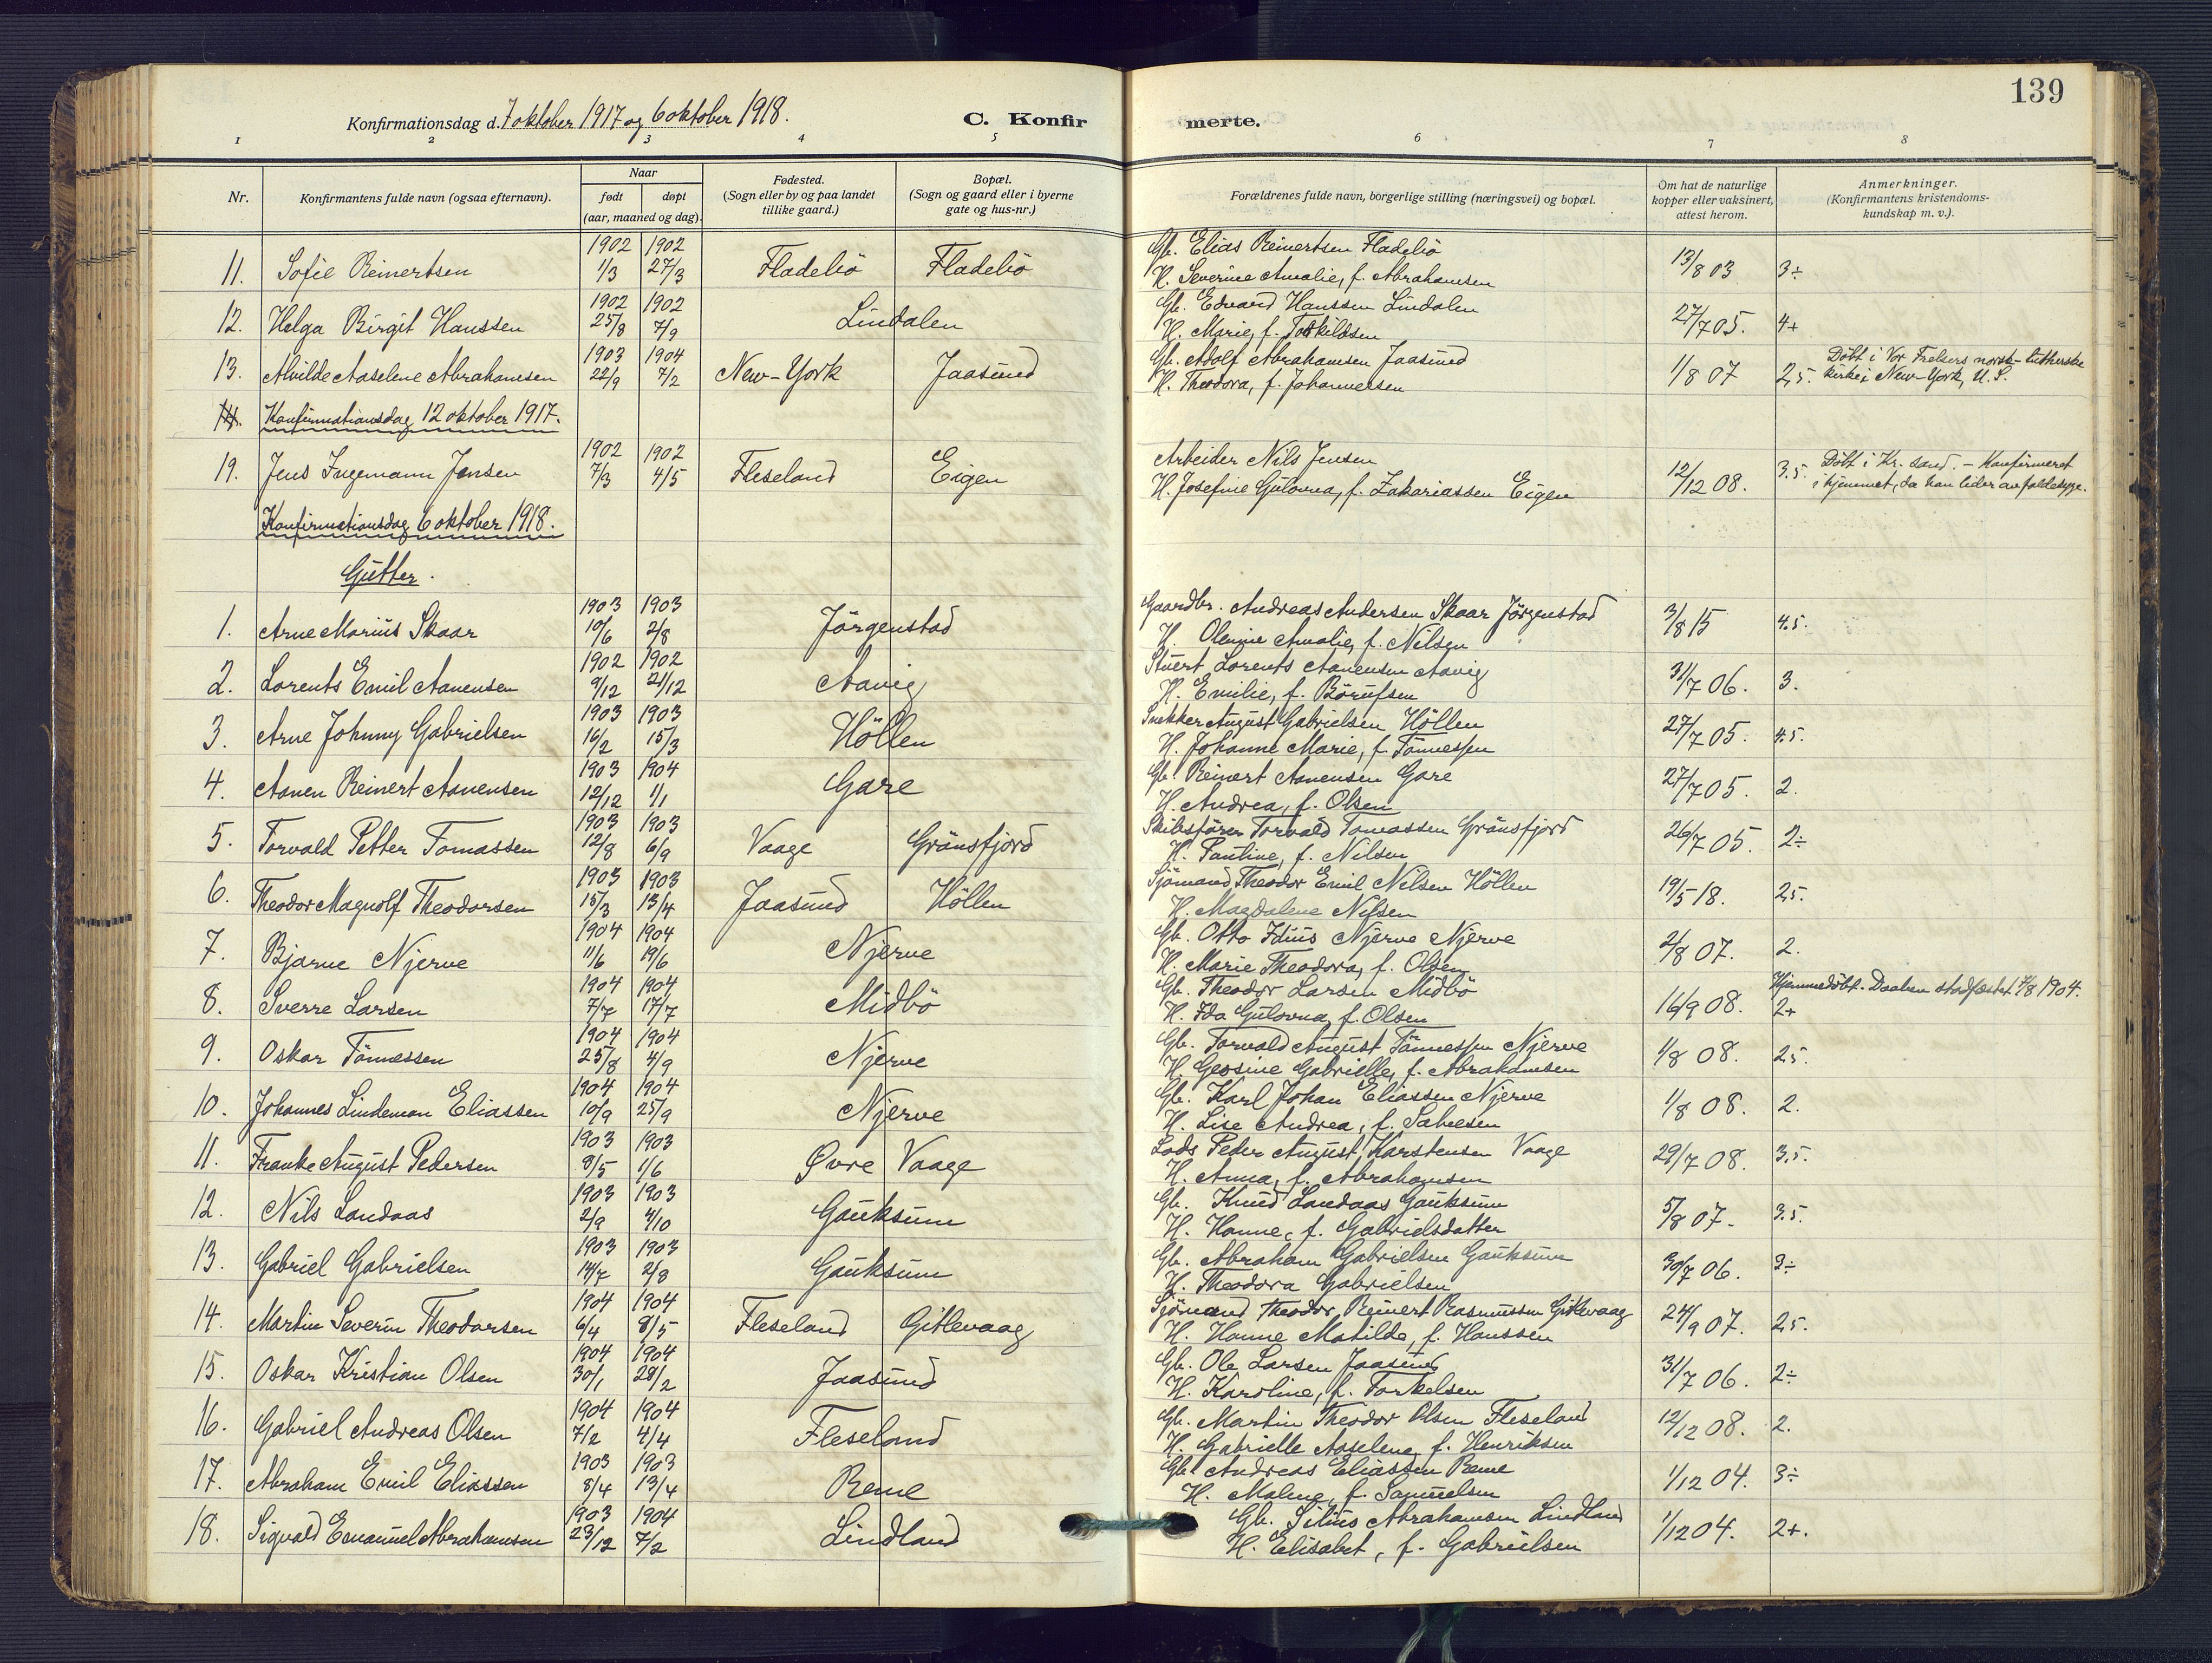 139
Konfirmationsdag d. 7 oktober 1917 og 6 oktober 1918.
C. Konfir merte.
1 2 3 4 5 6 7 8
Nr. Konfirmantens fulde navn (ogsaa efternavn). Naar født døpt (aar, maaned og dag). Fødested. (Sogn eller by og paa landet tillike gaard.) Bopæl. (Sogn og gaard eller i byerne gate og hus-nr.) Forældrenes fulde navn, borgerlige stilling (næringsvei) og bopæl. Om hat de naturlige kopper eller vaksinert, attest herom. Anmerkninger. (Konfirmantens kristendoms-kundskap m. v.).
11. Sofie Reinertsen 1902 1/3 1902 27/3 Fladebö Fladebö Gb. Elias Reinertsen Fladebö 13/8 03 3÷
H. Severine Amalie, f. Abrahamsen
12. Helga Birgit Hanssen 1902 25/8 1902 7/9 Lindalen Gb. Edvard Hanssen Lindalen 27/7 05. 4+
H. Marie, f. Torkildsen
13. Alvilde Aaselene Abrahamsen 1903 22/9 1904 7/2 New-York Jaasund Gb. Adolf Abrahamsen Jaasund 1/8 07 2,5. Döbt i Vor Frelsers norsk-lutherske
H. Theodora, f. Johannesen kirke i New-York, U.S.
14. Konfirmationsdag 12 oktober 1917.
19. Jens Ingemann Jensen 1902 7/3 1902 4/5 Fleseland Eigen Arbeider Nils Jensen 12/12 08. 3.5. Döbt i Kr. sand. - Konfirmeret
H. Josefine Gulovna, f. Zakariassen Eigen i hjemmet, da han lider av faldesyge.
Konfirmationsdag 6 oktober 1918.
Gutter.
1. Arne Marius Skaar 1903 10/6 1903 2/8 Jörgenstad Gaardbr. Andreas Andersen Skaar Jörgenstad 3/8 15 4.5.
H. Olenine Amalie, f. Nilsen
2. Lorents Emil Aanensen 1902 9/12 1902 21/12 Aavig Stuert Lorents Aanensen Aavig 31/7 06. 3.
H. Emilie, f. Börufsen
3. Arne Johnny Gabrielsen 1903 16/2 1903 15/3 Höllen Snekker August Gabrielsen Höllen 27/7 05. 4.5.
H. Johanne Marie, f. Tönnessen
4. Aanen Reinert Aanensen 1903 12/12 1904 1/1 Gare Gb. Reinert Aanensen Gare 27/7 05. 2.
H. Andrea, f. Olsen
5. Torvald Petter Tomassen 1903 12/8 1903 6/9 Vaage Grönsfjord Skibsförer Torvald Tomassen Grönsfjord 26/7 05. 2÷
H. Pantine, f. Nilsen
6. Theodor Magnolf Theodorsen 1903 15/3 1903 13/4 Jaasund Höllen Sjömand Theodor Emil Nilsen Höllen 19/5 18. 2,5.
H. Magdalene Nilsen
7. Bjarne Njerve 1904 11/6 1904 19/6 Njerve Gb. Otto Idius Njerve Njerve 2/8 07. 2.
H. Marie Theodora, f. Olsen
8. Sverre Larsen 1904 7/7 1904 17/7 Midbö Gb. Theodor Larsen Midbö 16/9 08. Hjemmedöbt. Daaben stadfæstet 7/8 1904. 2+
H. Ida Gulovna, f. Olsen
9. Oskar Tönnessen 1904 25/8 1904 4/9 Njerve Gb. Torvald August Tönnessen Njerve 1/8 08. 2,5.
H. Gessine Gabrielle, f. Abrahamsen
10. Johannes Lindeman Eliassen 1904 10/9 1904 25/9 Njerve Gb. Karl Johan Eliassen Njerve 1/8 08. 2.
H. Lise Andrea, f. Salvesen
11. Franke August Pedersen 1903 8/5 1903 1/6 Øvre Vaage Lods Peder August Karstensen Vaage 29/7 08. 3.5.
H. Anna, f. Abrahamsen
12. Nils Landaas 1903 2/9 1903 4/10 Gauksum Gb. Knud Landaas Gauksum 5/8 07. 3.5.
H. Hanne, f. Gabrielsdatter
13. Gabriel Gabrielsen 1903 14/7 1903 2/8 Gauksum Gb. Abraham Gabrielsen Gauksum 30/7 06. 3÷
H. Theodora Gabrielsen
14. Martin Severin Theodorsen 1904 6/4 1904 8/5 Fleseland Gitlevaag Sjömand Theodor Reinert Rasmussen Gitlevaag 24/9 07. 2,5.
H. Hanne Matilde, f. Hanssen
15. Oskar Kristian Olsen 1904 30/1 1904 28/2 Jaasund Gb. Ole Larsen Jaasund 31/7 06. 2÷
H. Karoline, f. Torkelsen
16. Gabriel Andreas Olsen 1904 7/2 1904 4/4 Fleseland Gb. Martin Theodor Olsen Fleseland 12/12 08. 2.
H. Gabrielle Aaselene, f. Henriksen
17. Abraham Emil Eliassen 1903 8/4 1903 13/4 Reme Gb. Andreas Eliassen Reme 1/12 04. 3÷
H. Malene, f. Samuelsen
18. Sigvald Emanuel Abrahamsen 1903 23/12 1904 7/2 Lindland Gb. Silius Abrahamsen Lindland 1/12 04. 2+.
H. Elisabet, f. Gabrielsen